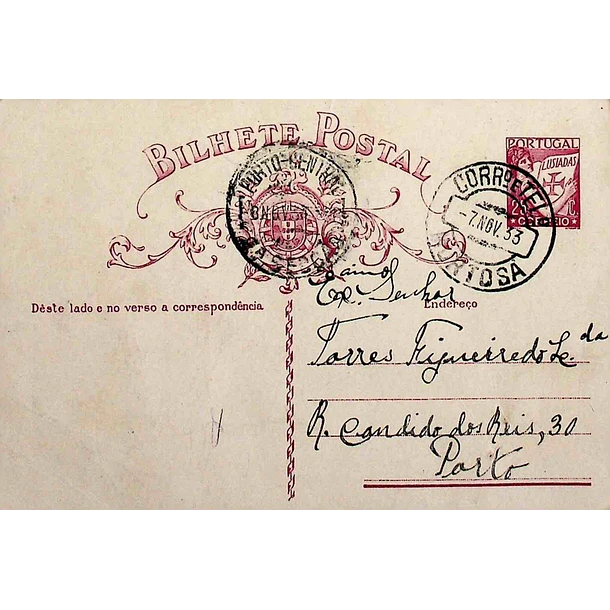 BILHETE POSTAL
PORTUGAL
LUSIADAS
25 C.
CORREIO
PORTO-CENTRAL
CORRº E TEL
-7.NOV.33
Dêste lado e no verso a correspondência
Endereço
Ex.mos Senhor
Torres Figueiredo L.da
R. Candido dos Reis, 30
Porto